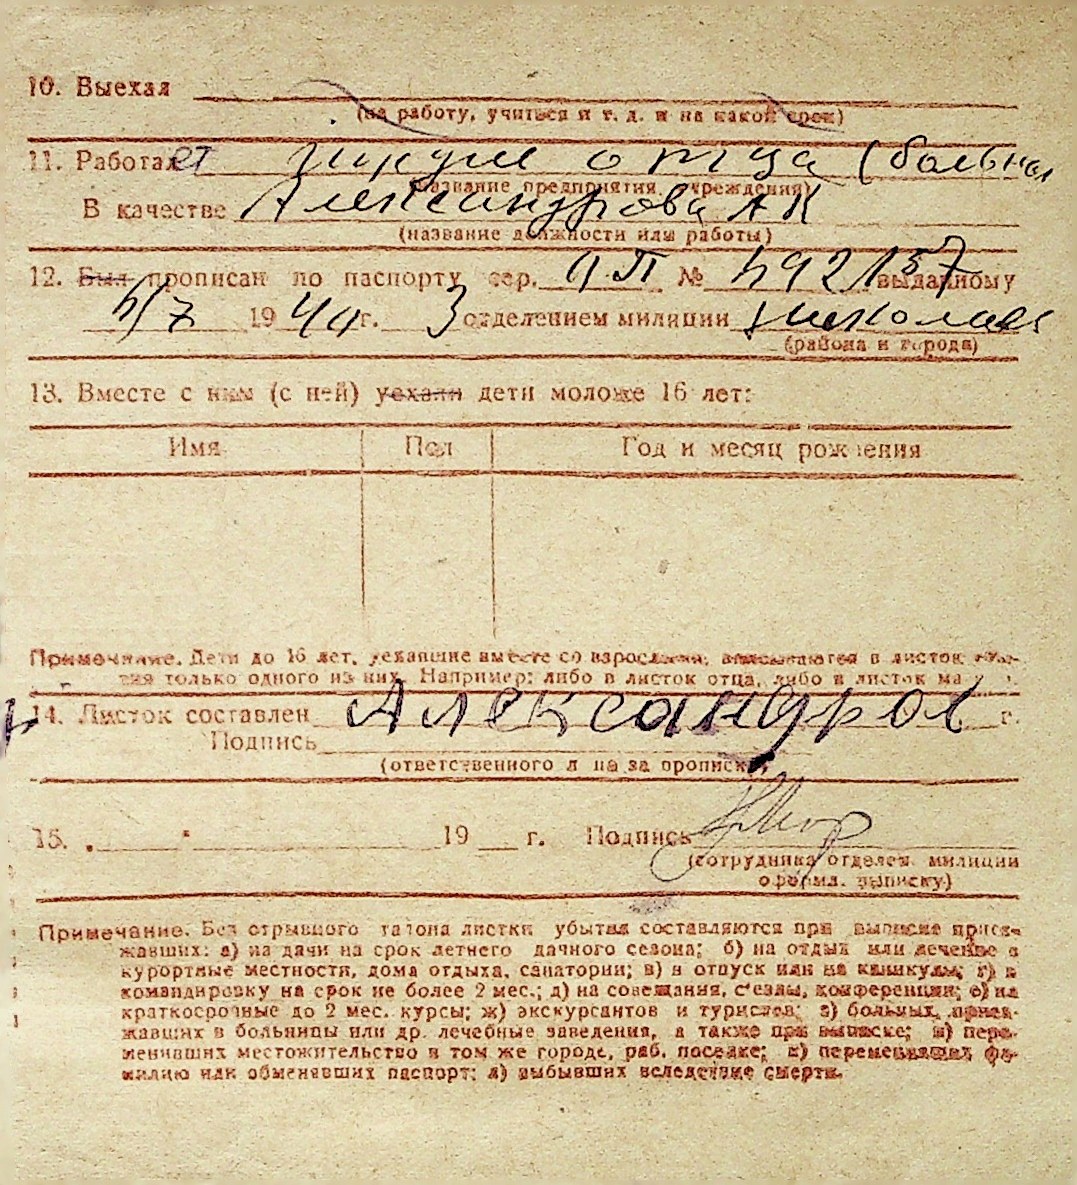 10. Выехал
(на работу, учиться и т. д. и на какой срок)
11. Работает отца (больная
(название предприятия, учреждения)
В качестве Александрова А К
(название должности или работы)
12. Был прописан по паспорту сер. № 592157 выданному
5/7 1940 г. 3 отделением милиции г. Николаев
(района и города)
13. Вместе с ним (с ней) уехали дети моложе 16 лет:
Имя Пол Год и месяц рождения
Примечание. Дети до 16 лет, уехавшие вместе со взрослыми, вписываются в листок
только одного из них. Например: либо в листок отца, либо в листок
14. Листок составлен Александров г.
Подпись
(ответственного за прописку)
15. „ " 19 г. Подпись
(сотрудника отделен. милиции
оформл. выписку)
Примечание. Без отрывного талона листки убытия составляются при выписке приез-
жавших: а) на дачи на срок летнего дачного сезона; б) на отдых или лечение в
курортные местности, дома отдыха, санатории; в) в отпуск или на каникулы; г) в
командировку на срок не более 2 мес.; д) на совещания, съезды, конференции; е) на
краткосрочные до 2 мес. курсы; ж) экскурсантов и туристов; з) больных, приез-
жавших в больницы или др. лечебные заведения, а также при выписке; и) пере-
менивших местожительство в том же городе, раб. поселке; к) переменивших фа-
милию или обменявших паспорт; л) выбывших вследствие смерти.